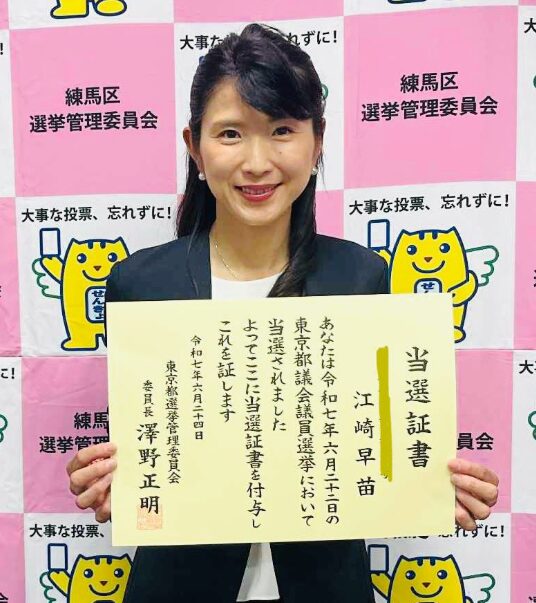 大事な
れずに!
練馬区
選挙管理委員会
練馬区
選挙管理委員会
大事な投票、忘れずに!
大事な投票、忘れずに!
せんきょ
せん
当選証書
江崎早苗
あなたは令和七年六月二十二日の
東京都議会議員選挙において
当選されました
よってここに当選証書を付与し
これを証します
令和七年六月二十四日
東京都選挙管理委員会
委員長 澤野正明
に!
練馬
選挙管
大事な投票、忘れずに!
れずに!